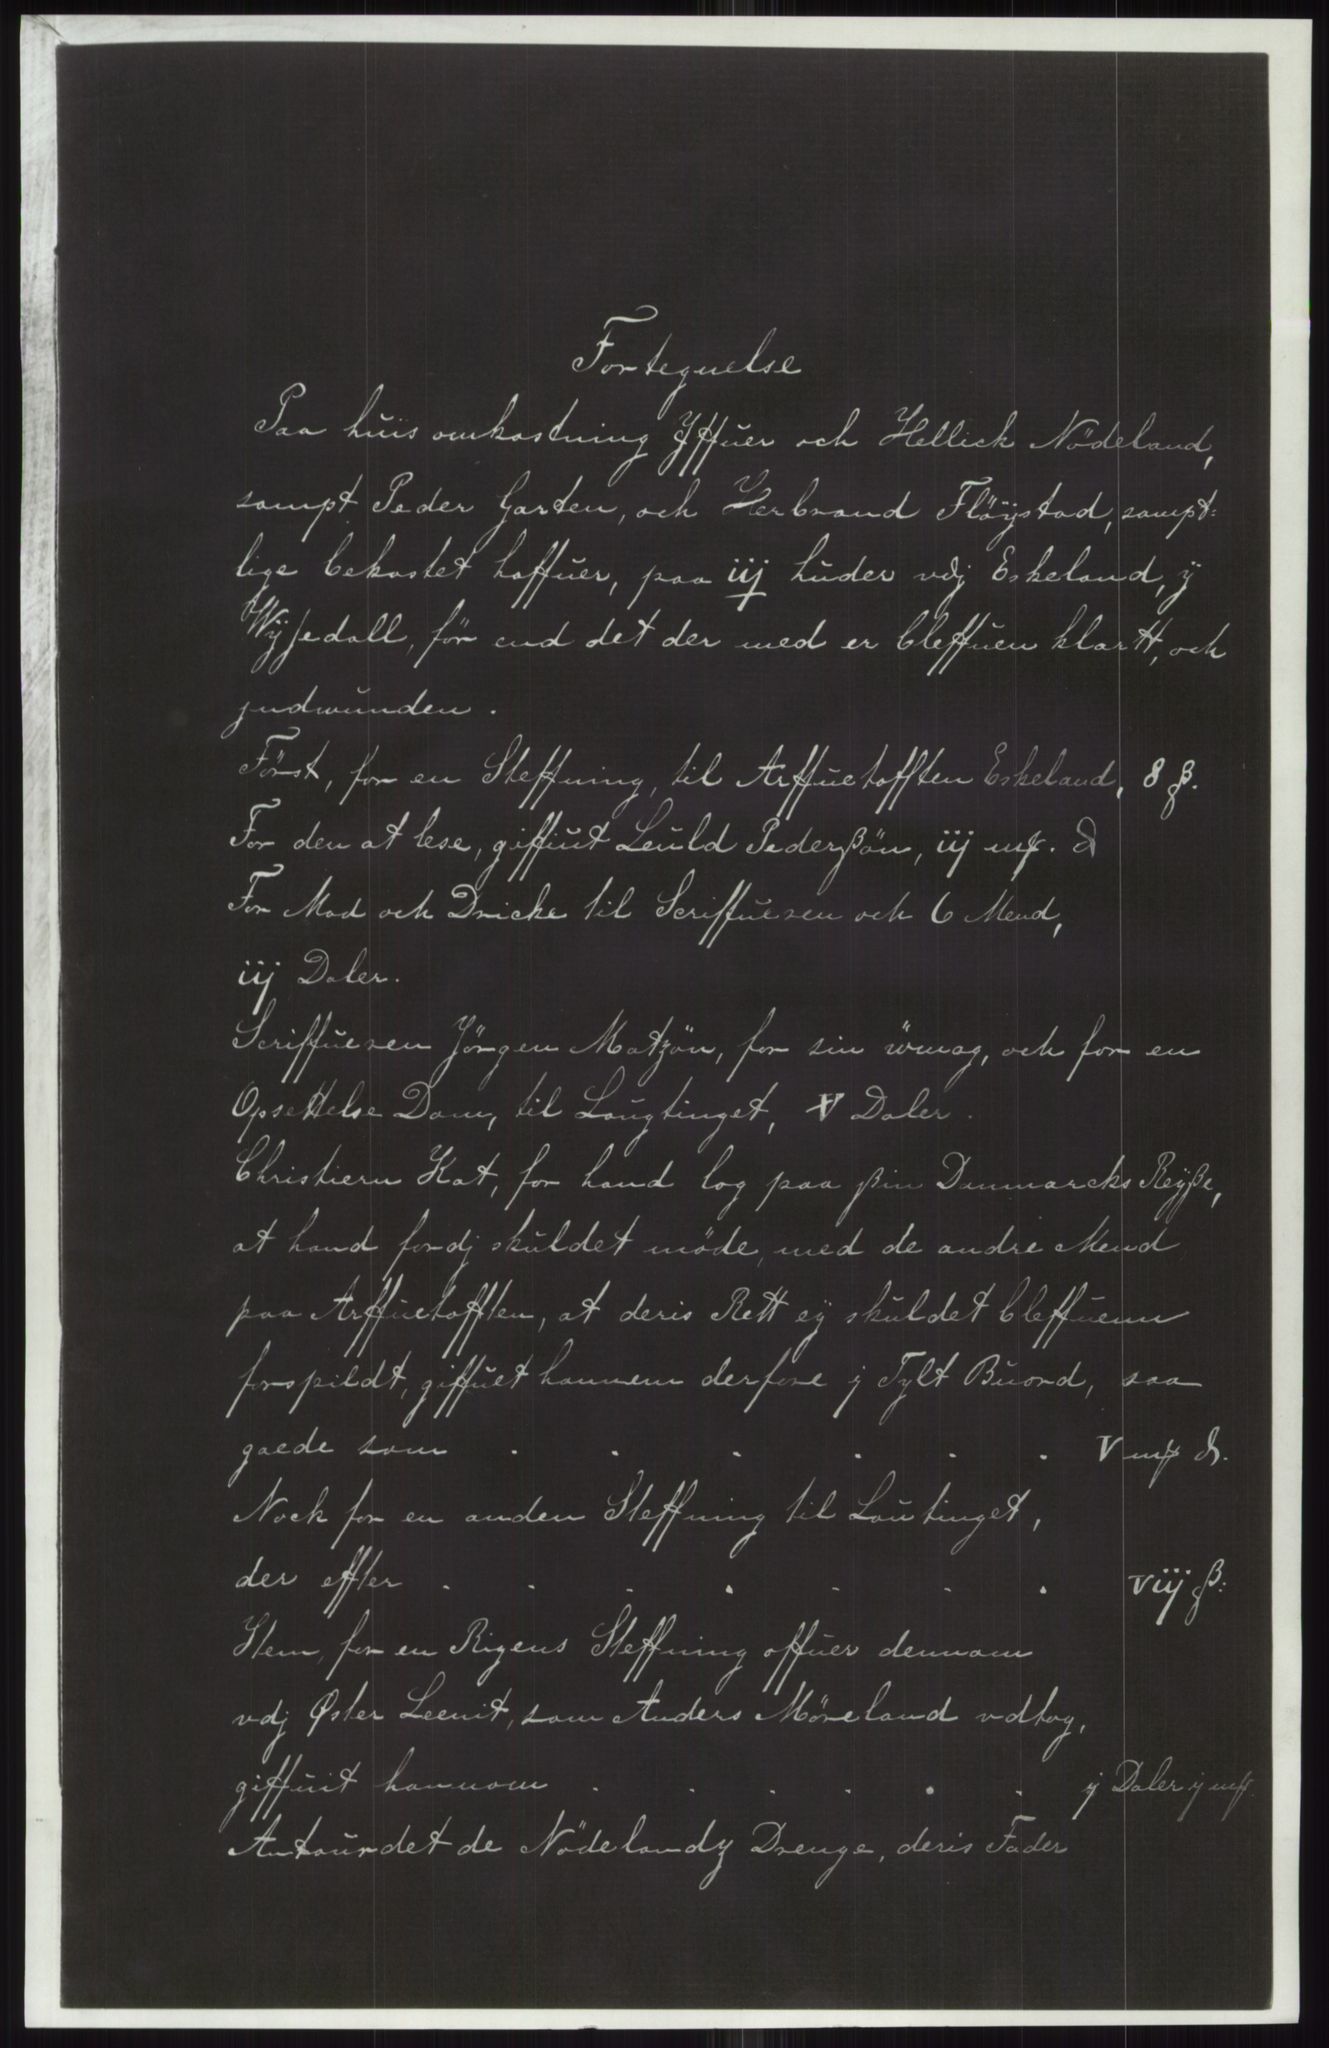 Fortegnelse
Paa huis omkostning Jffuer och Hellick Nödeland,
sampt Peder Garten, och Herbrand Flöÿstad, sampt:
lige bekostet haffuer, paa iij huder vdj Eskeland, ÿ
Wÿsedall, för end det der med er bleffuen klartt, och
jndwunden.
Först, for en Steffning, til Arffuetofften Eskeland, 8 ß.
For den at lese, giffuit Leuld Pederßön, iij mk. d
For Mad och Dricke til Scriffueren och 6 Mend,
iij Daler.
Scriffueren Jörgen Matzön, for sin wmag, och for en
Opsettelse Dom, til Laugtinget, V Daler.
Christiern Kat, for hand log paa ßin Danmarcks Reÿße,
at hand fordj skuldet möde, med de andre Mend
paa Arffuetofften, at deris Rett eÿ skuldet bleffuenn
forspildt, giffuet hannem derfore j Tylt Buord, saa
goede som . . . . . . V mk d.
Nock for en anden Steffning til Lautinget,
der effter . . . . . . . viij ß:
Item, for en Rigens Steffning offuer dennom
vdj Øster Leenit, som Anders Möreland vdtog,
giffuit hannom . . . . . . ij Daler ij mk.
Antuordet de Nödelandz Drenge, deris Fader